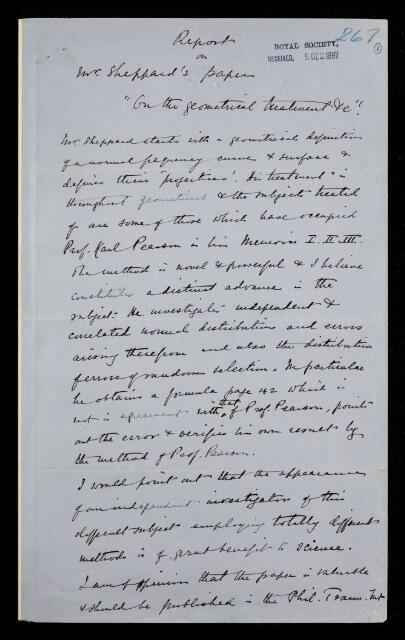 267
①
ROYAL SOCIETY,
RECEIVED, 9 DEC. 1897
Report
on
Mr. Sheppard's paper
"On the geometrical treatment &c".
Mr. Sheppard starts with a geometrical definition
of a normal frequency curve & surface &
defines their 'projections'. His treatment is
throughout geometrical & the subjects treated
of are some of those which have occupied
Prof. Karl Pearson in his Memoirs I. II. III.
The method is novel & powerful & I believe
constitutes a distinct advance in the
subject. He investigates independent &
correlated normal distributions and errors
arising therefrom and also the distribution
of errors of random selection. In particular
he obtains a formula page 42 which is
not in agreement with that of Prof. Pearson, points
out the error & verifies his own result by
the method of Prof. Pearson.
I would point out that the appearance
of an independent investigation of this
difficult subject employing totally different
methods is of great benefit to Science.
I am of opinion that the paper is valuable
& should be published in the Phil. Trans. but